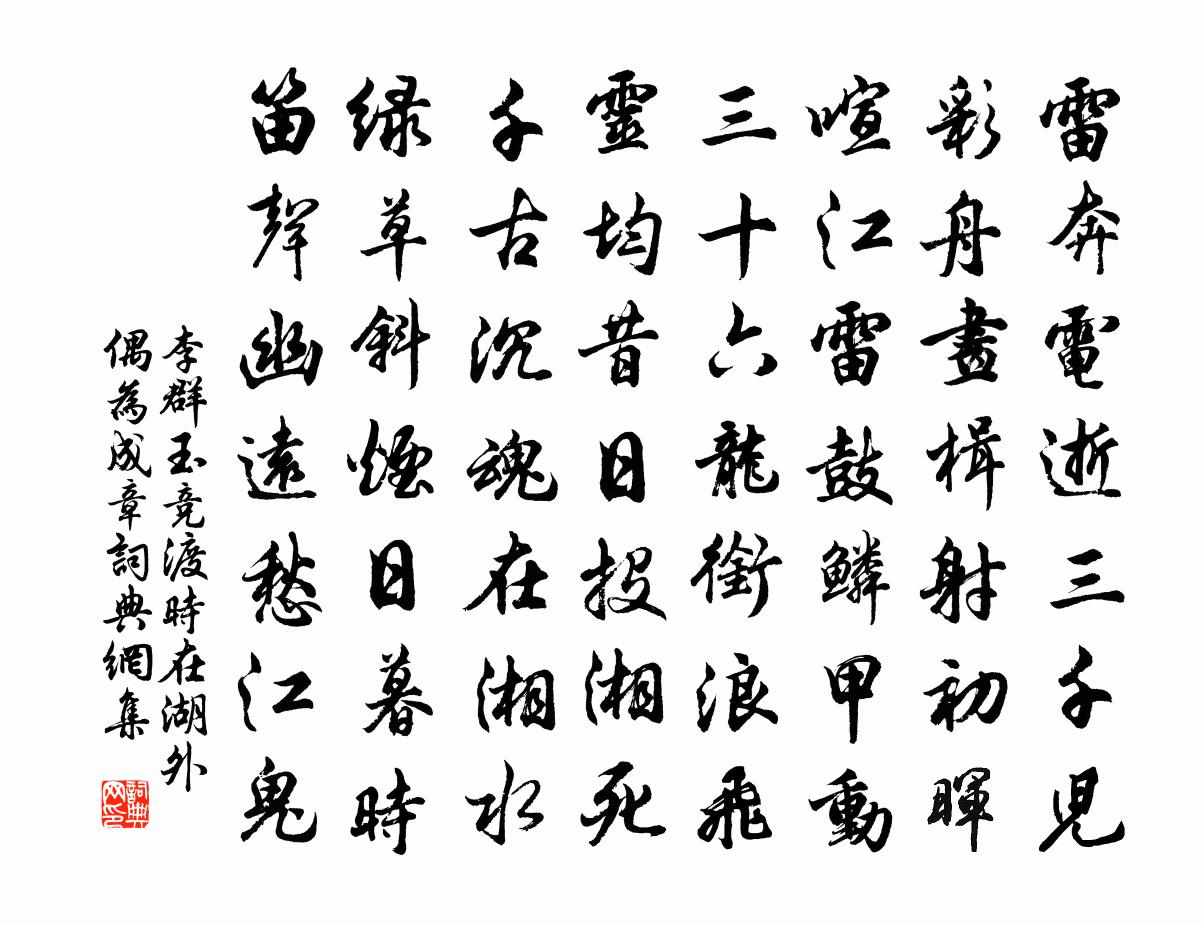 雷奔電逝三千兒
彩舟畫楫射初暉
喧江雷鼓鱗甲動
三十六龍銜浪飛
靈均昔日投湘死
千古沉魂在湘水
緑草斜煙日暮時
笛聲幽遠愁江鬼
李群玉競渡時在湖外
偶為成章詞典網集
詞典
网印